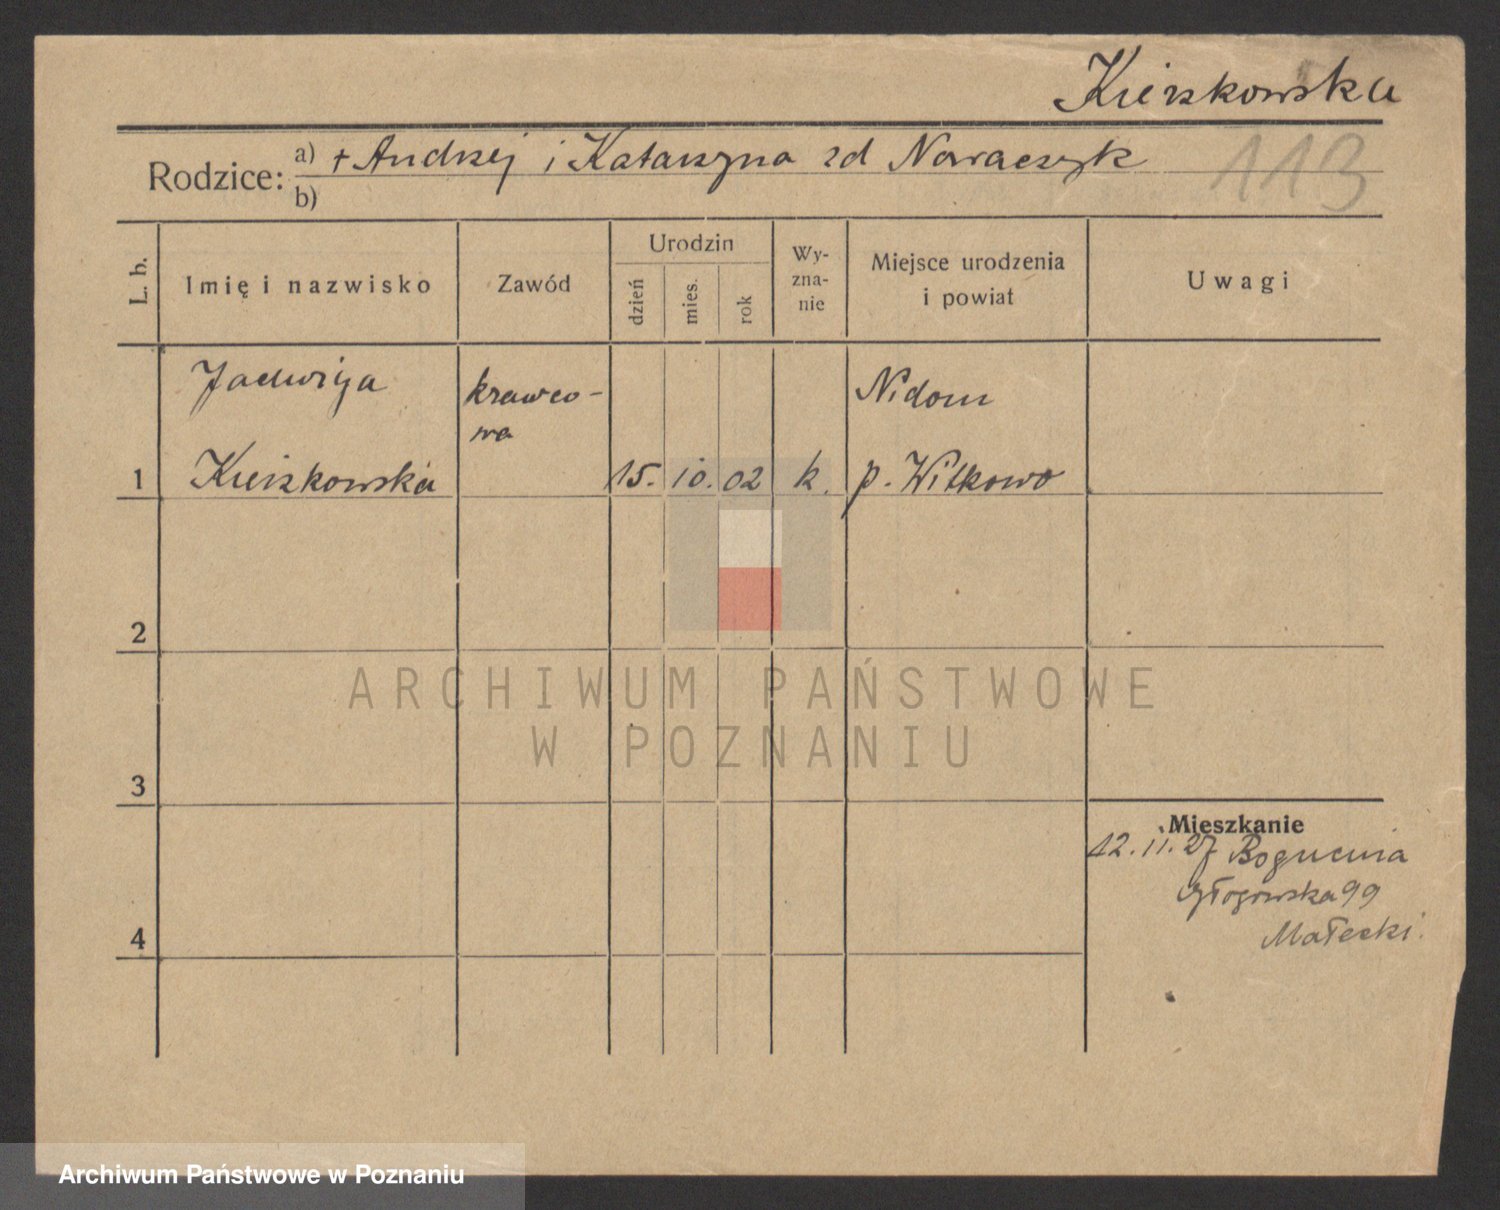 Kierzkowska
Rodzice: a) + Andrzej i Katarzyna zd Nowaczyk
b)
113
L. b.
Imię i nazwisko
Zawód
Urodzin
dzień
mies.
rok
Wy-
zna-
nie
Miejsce urodzenia
i powiat
Uwagi
Jadwiga
krawco-
wa
Nidom
1 Kierzkowska 15. 10. 02 k. p. Witkowo
2
3
4
Mieszkanie
12.11.27 Bogucina
Głogowska 99
Małecki.
ARCHIWUM PAŃSTWOWE
W POZNANIU
Archiwum Państwowe w Poznaniu